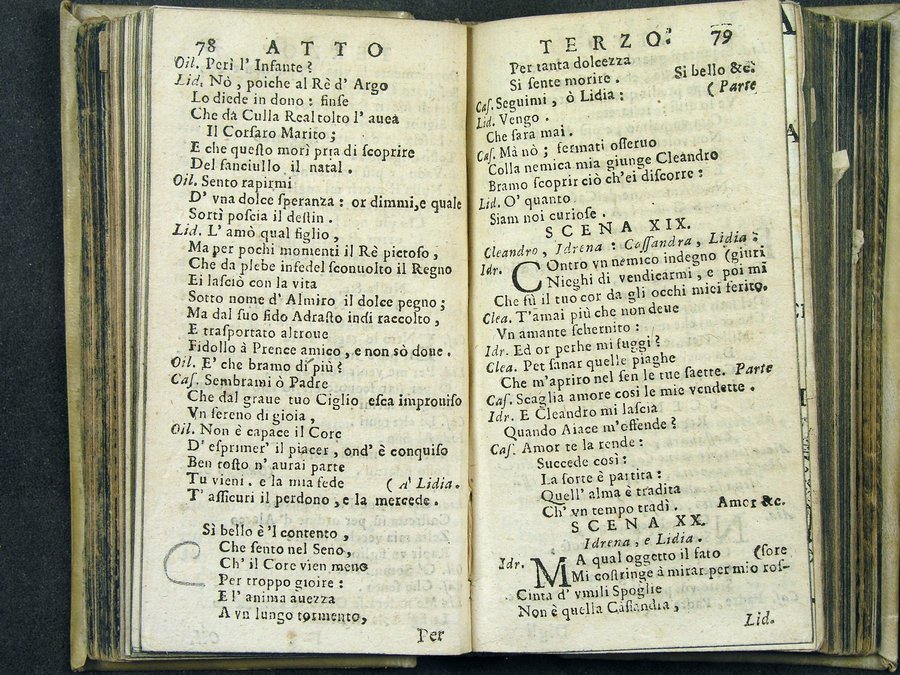 78 ATTO
Oil. Perì l' Infante ?
Lid. Nò, poiche al Rè d' Argo
Lo diede in dono : finse
Che dà Culla Real tolto l' auea
Il Corsaro Marito ;
E che questo morì pria di scoprire
Del fanciullo il natal .
Oil. Sento rapirmi
D' vna dolce speranza : or dimmi,e quale
Sortì poscia il destin .
Lid. L' amò qual figlio ,
Ma per pochi momenti il Rè pietoso ,
Che da plebe infedel sconuolto il Regno
Ei lasciò con la vita
Sotto nome d' Almiro il dolce pegno ;
Ma dal suo fido Adrasto indi raccolto ,
E trasportato altroue
Fidollo à Prence amico , e non sò doue .
Oil. E' che bramo di più ?
Cas. Sembrami ò Padre
Che dal graue tuo Ciglio esca improuiso
Vn sereno di gioia ,
Oil. Non è capace il Core
D' esprimer' il piacer , ond' è conquiso
Ben tosto n' aurai parte
Tu vieni . e la mia fede ( A' Lidia .
T' assicuri il perdono , e la mercede .
Sì bello è 'l contento ,
Che sento nel Seno,
Ch' il Core vien meno
Per troppo gioire :
E l' anima auezza
A vn lungo tormento,
Per
TERZO. 79
Per tanta dolcezza
Si sente morire . Si bello &c.
Cas. Seguimi , ò Lidia : ( Parte
Lid. Vengo .
Che sara mai .
Cas. Mà nò ; fermati osseruo
Colla nemica mia giunge Cleandro
Bramo scoprir ciò ch'ei discorre :
Lid. O' quanto
Siam noi curiose .
SCENA XIX.
Cleandro , Idrena : Cassandra , Lidia :
Idr. COntro vn nemico indegno (giuri
Nieghi di vendicarmi , e poi mi
Che fù il tuo cor da gli occhi miei ferito.
Clea. T'amai più che non deue
Vn amante schernito :
Idr. Ed or perhe mi fuggi ?
Clea. Pet sanar quelle piaghe
Che m'apriro nel sen le tue saette. Parte
Cas. Scaglia amore così le mie vendette .
Idr. E Cleandro mi lascia
Quando Aiace m'offende ?
Cas. Amor te la rende :
Succede così :
La sorte è partita :
Quell' alma è tradita
Ch' vn tempo tradì . Amor &c.
SCENA XX.
Idrena , e Lidia .
Idr. MA qual oggetto il fato (sore
Mi costringe à mirar per mio ros-
Cinta d' vmili Spoglie
Non è quella Cassandia ,
Lid.